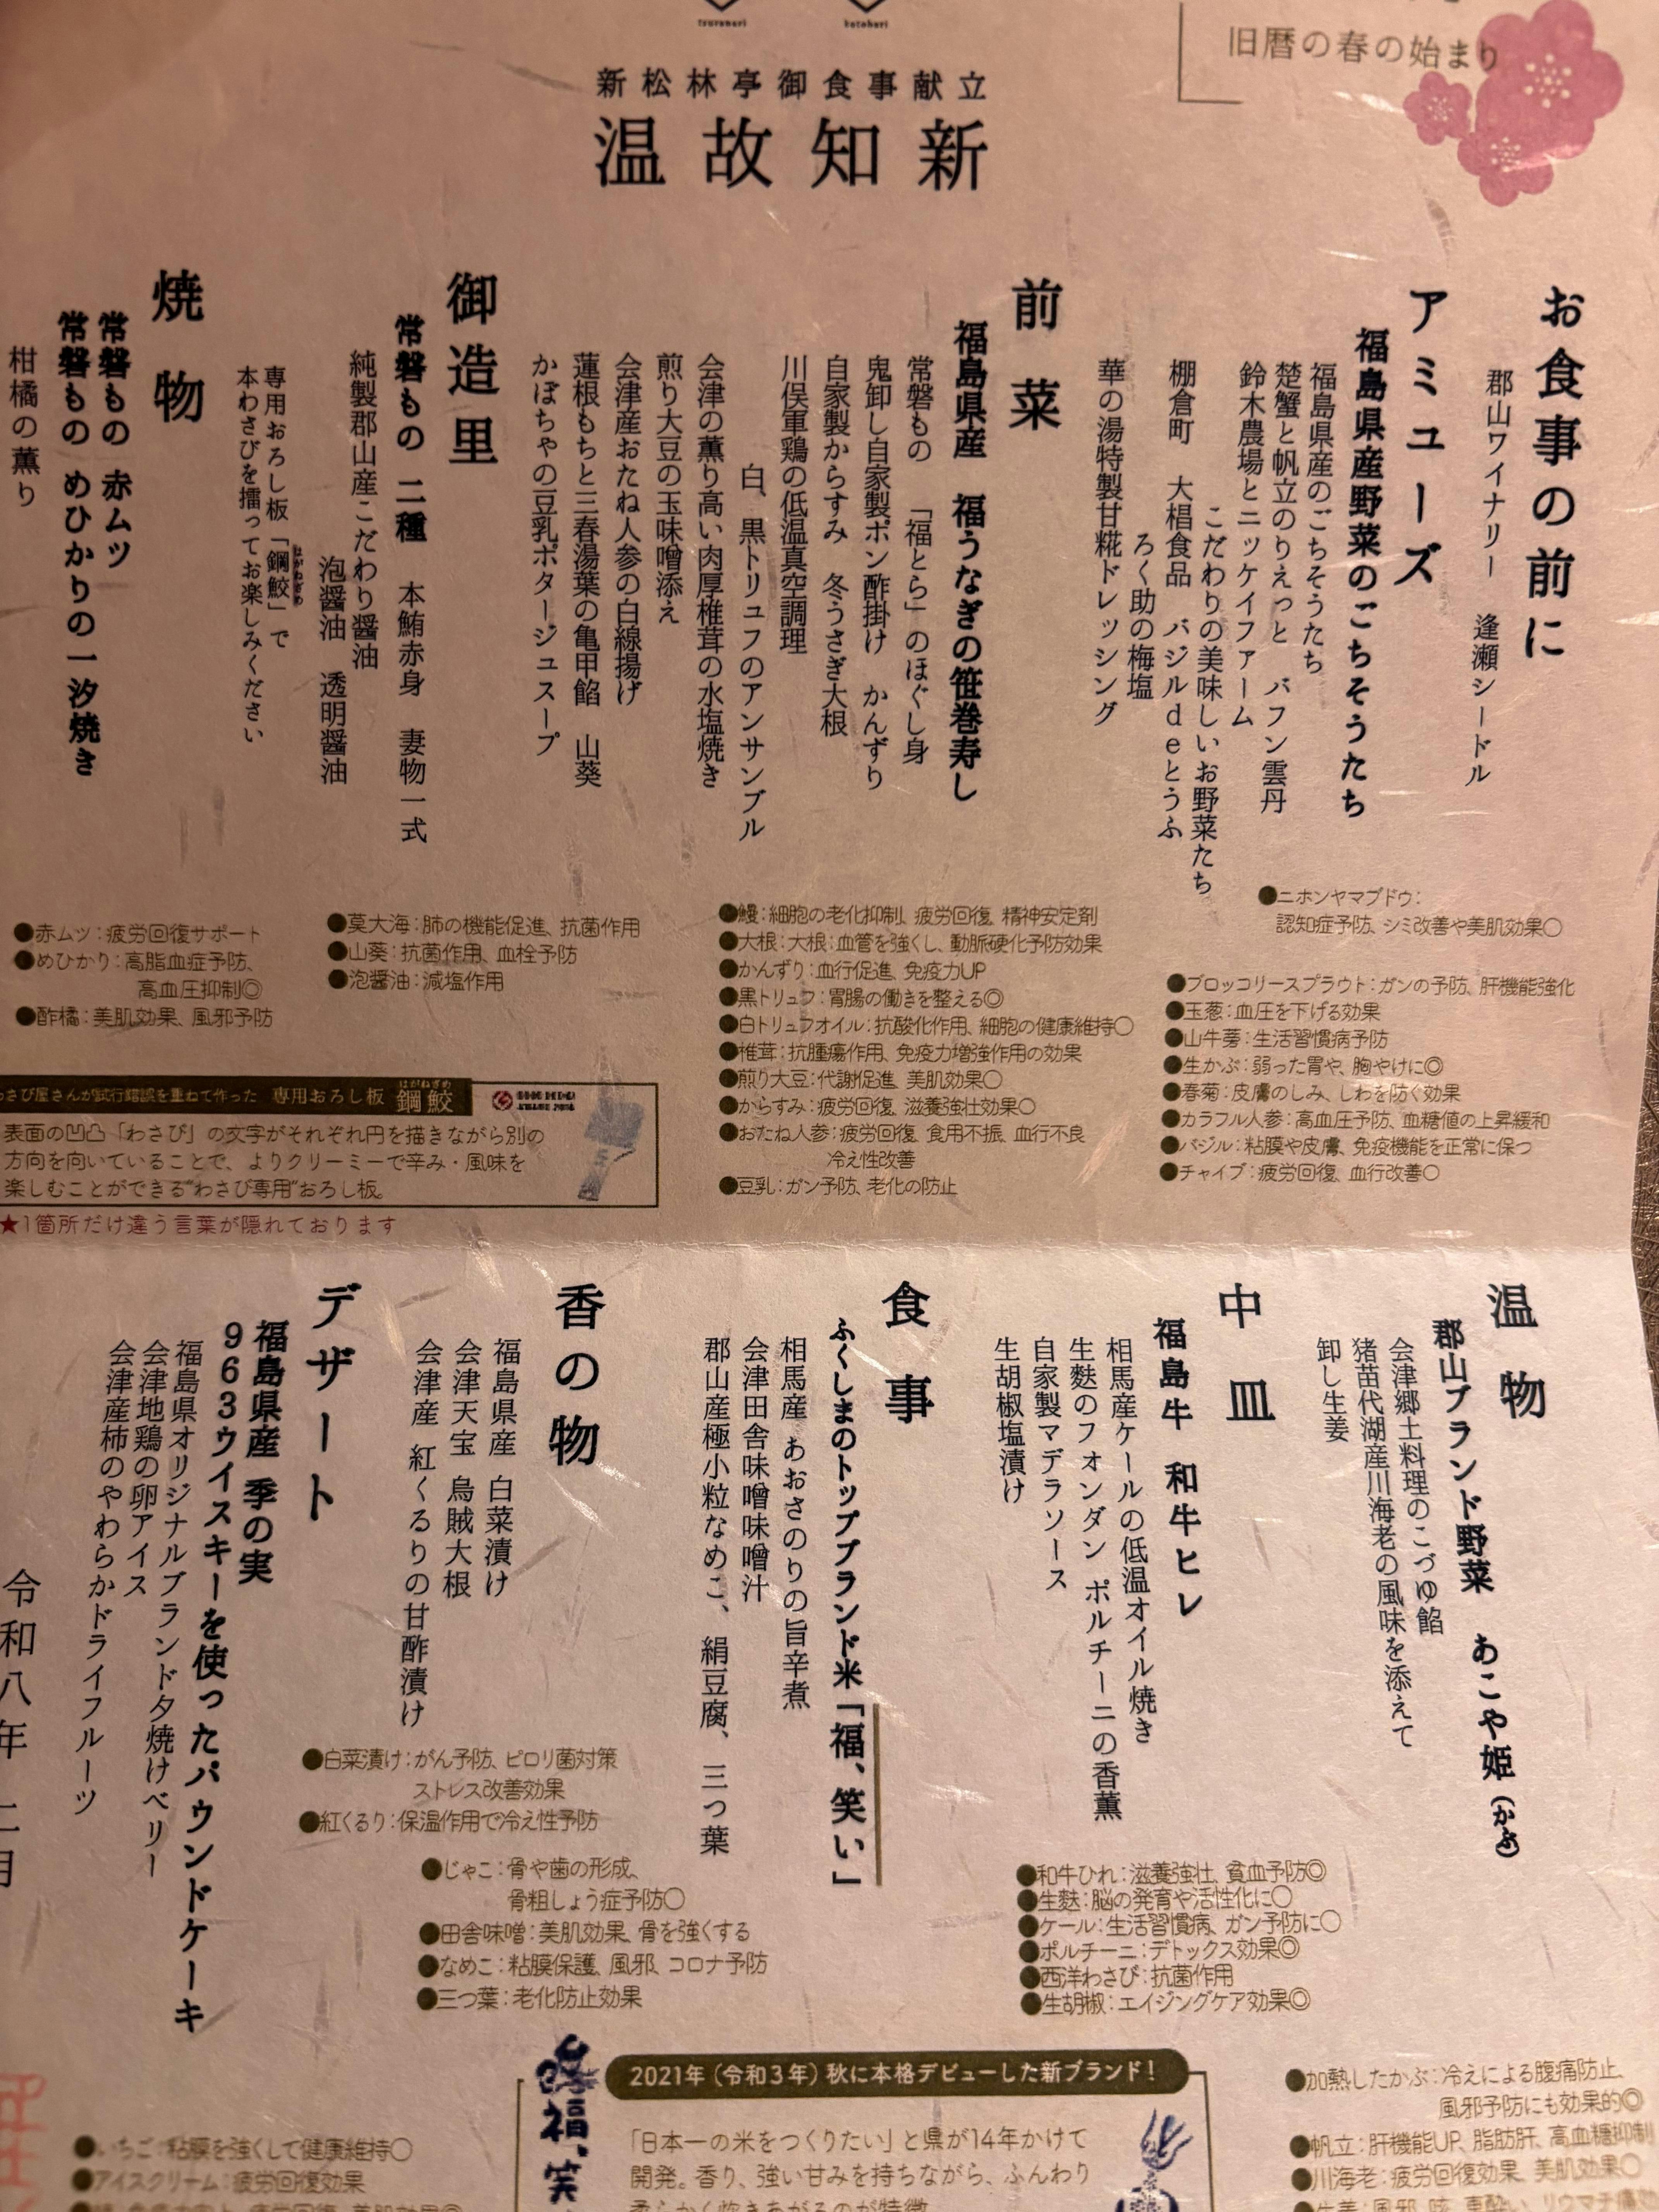 tsuranari
kotohori
旧暦の春の始まり
新松林亭御食事献立
温故知新
お食事の前に
郡山ワイナリー 逢瀬シードル
アミューズ
福島県産野菜のごちそうたち
福島県産のごちそうたち
楚蟹と帆立のりえっと バフン雲丹
鈴木農場とニッケイファーム
こだわりの美味しいお野菜たち
棚倉町 大椙食品 バジルdeとうふ
ろく助の梅塩
華の湯特製甘糀ドレッシング
前菜
福島県産 福うなぎの笹巻寿し
常磐もの 「福とら」のほぐし身
鬼卸し自家製ポン酢掛け かんずり
自家製からすみ 冬うさぎ大根
川俣軍鶏の低温真空調理
白、黒トリュフのアンサンブル
会津の薫り高い肉厚椎茸の水塩焼き
煎り大豆の玉味噌添え
会津産おたね人参の白線揚げ
蓮根もちと三春湯葉の亀甲餡 山葵
かぼちゃの豆乳ポタージュスープ
御造里
常磐もの 二種 本鮪赤身 妻物一式
純製郡山産こだわり醤油
泡醤油 透明醤油
専用おろし板「鋼鮫」で
はがねざめ
本わさびを擂ってお楽しみください
焼物
常磐もの 赤ムツ
常磐もの めひかりの一汐焼き
柑橘の薫り
●ニホンヤマブドウ:
認知症予防、シミ改善や美肌効果○
●ブロッコリースプラウト:ガンの予防、肝機能強化
●玉葱:血圧を下げる効果
●山牛蒡:生活習慣病予防
●生かぶ:弱った胃や、胸やけに◎
●春菊:皮膚のしみ、しわを防ぐ効果
●カラフル人参:高血圧予防、血糖値の上昇緩和
●バジル:粘膜や皮膚、免疫機能を正常に保つ
●チャイブ:疲労回復、血行改善○
●鰻:細胞の老化抑制、疲労回復、精神安定剤
●大根:大根:血管を強くし、動脈硬化予防効果
●かんずり:血行促進、免疫力UP
●黒トリュフ:胃腸の働きを整える◎
●白トリュフオイル:抗酸化作用、細胞の健康維持○
●椎茸:抗腫瘍作用、免疫力増強作用の効果
●煎り大豆:代謝促進、美肌効果○
●からすみ:疲労回復、滋養強壮効果○
●おたね人参:疲労回復、食用不振、血行不良
冷え性改善
●豆乳:ガン予防、老化の防止
●莫大海:肺の機能促進、抗菌作用
●山葵:抗菌作用、血栓予防
●泡醤油:減塩作用
●赤ムツ:疲労回復サポート
●めひかり:高脂血症予防、
高血圧抑制◎
●酢橘:美肌効果、風邪予防
さび屋さんが試行錯誤を重ねて作った 専用おろし板 鋼鮫
はがねざめ
表面の凹凸「わさび」の文字がそれぞれ円を描きながら別の
方向を向いていることで、よりクリーミーで辛み・風味を
楽しむことができる“わさび専用”おろし板。
★1箇所だけ違う言葉が隠れております
温物
郡山ブランド野菜 あこや姫(かぶ)
会津郷土料理のこづゆ餡
猪苗代湖産川海老の風味を添えて
卸し生姜
中皿
福島牛 和牛ヒレ
相馬産ケールの低温オイル焼き
生麩のフォンダン ポルチーニの香薫
自家製マデラソース
生胡椒塩漬け
食事
ふくしまのトップブランド米「福、笑い」
相馬産 あおさのりの旨辛煮
会津田舎味噌味噌汁
郡山産極小粒なめこ、絹豆腐、三つ葉
香の物
福島県産 白菜漬け
会津天宝 烏賊大根
会津産 紅くるりの甘酢漬け
デザート
福島県産 季の実
963ウイスキーを使ったパウンドケーキ
福島県オリジナルブランド夕焼けベリー
会津地鶏の卵アイス
会津産柿のやわらかドライフルーツ
令和八年 二月
●白菜漬け:がん予防、ピロリ菌対策
ストレス改善効果
●紅くるり:保温作用で冷え性予防
●じゃこ:骨や歯の形成、
骨粗しょう症予防○
●田舎味噌:美肌効果、骨を強くする
●なめこ:粘膜保護、風邪、コロナ予防
●三つ葉:老化防止効果
●和牛ひれ:滋養強壮、貧血予防◎
●生麩:脳の発育や活性化に○
●ケール:生活習慣病、ガン予防に○
●ポルチーニ:デトックス効果◎
●西洋わさび:抗菌作用
●生胡椒:エイジングケア効果◎
●加熱したかぶ:冷えによる腹痛防止、
風邪予防にも効果的◎
●帆立:肝機能UP、脂肪肝、高血糖抑制
●川海老:疲労回復効果、美肌効果○
福、笑
2021年(令和3年)秋に本格デビューした新ブランド!
「日本一の米をつくりたい」と県が14年かけて
開発。香り、強い甘みを持ちながら、ふんわり
柔らかく炊きあがるのが特徴
●いちご:粘膜を強くして健康維持○
●アイスクリーム:疲労回復効果